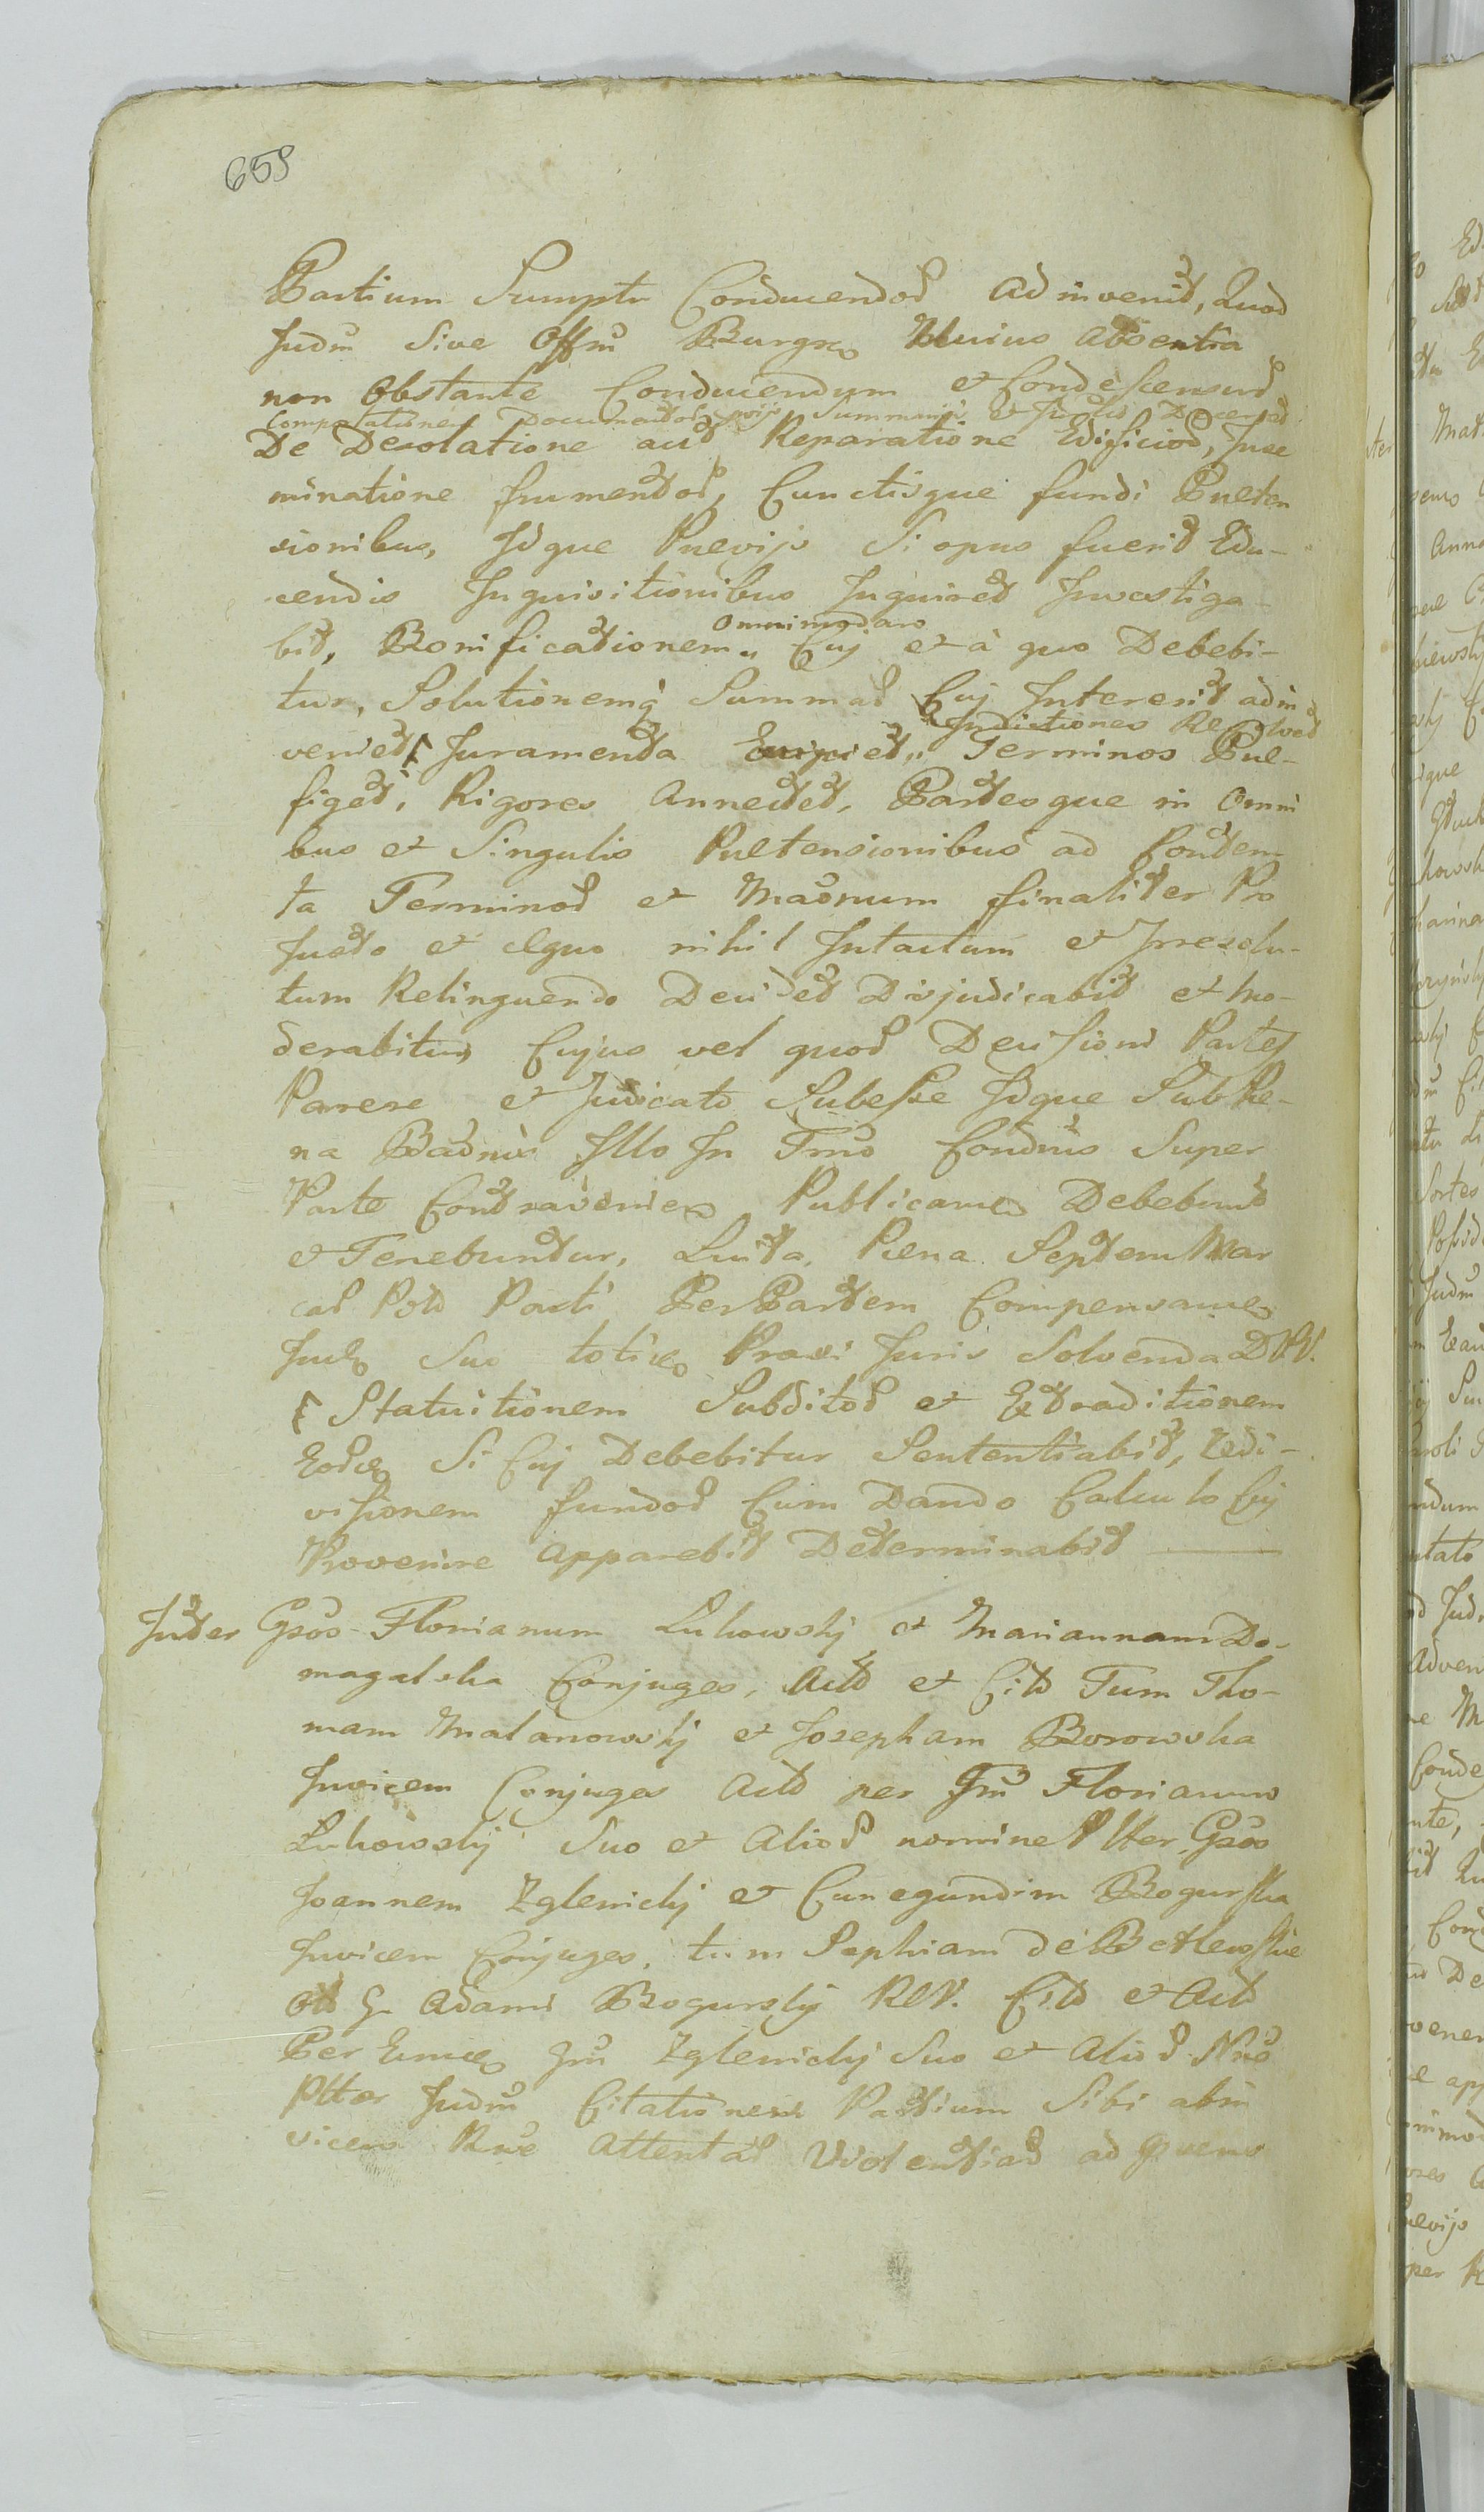 659
Partium Sumptu Conducendoꝝ adinvenit, Quod
Judm̄ Sive Offm̄ Burgse Unius absentia
non Obstante Conducendum et Condescensuꝝ
Compatationes Documentoꝝ Summarij et Decernet
De Desolatione aut Reparatione Edificioꝝ, Inse
minatione frumentoꝝ, Cunctisque fundi Præten
sionibus, Idque Prævijs Si opus fuerit Edu-
cendis Inquisitionibus Inquiret Investiga-
omnimodas
bit, Bonificationem„ Cuj et à quo Debebi-
tur, Solutionemq̃ Summaꝝ Cuj Intererit adin
Indictiones Resolvet
veniet Juramenta Excipiet„ Terminos Præ-
figet, Rigores Annectet, Partesque in Omni
bus et Singulis Prætensionibus ad Conten
ta Terminoꝝ et Mādnum finaliter Pro
Justo et Æquo nihil Intactum et Irresolu-
tum Relinquendo Decidet Disjudicabit et Mo-
derabitur, Cujus vel quoꝝ Decisioni Partes
Parere et Judicato Subesse Idque Sub Pæ-
na Bādnis Illo In Tm̄o Condnis Super
Parte Contravenien Publicanda Debebunt
et Tenebuntur, Luita Pæna Septem Mar
caꝝ Polo Parti Per Partem Compensanda
Judo Suo toties Praxi Juris Solvenda D.P.V.
Statuitionem Subditoꝝ et Extraditionem
Eoꝝdem Si Cuj Debebitur Sententiabit, ædi-
visionem fundoꝝ Cum Dando Calculo Cuj
Provenire apparebit Determinabit —
Inter Gsōs Florianum Lukowskj et Mariannam Do-
magalska Conjuges, Acto et Cito Tum Tho-
mam Malanowskj et Josepham Borowska
Invicem Conjuges Acto per Gm̄ Florianum
Lukowskj Suo et Alioꝝ nomine Ptter, Gsōs
Joannem Zglenickj et Cunegundim Bogurska
Invicem Conjuges, tum Sophiam de Betlewskie
Oło G. Adami Bogurskj REV. Cito et Acto
Per Eundem Gm̄ Zglenickj Suo et Alioꝝ Nn̄e
Ptter Judm̄ Citationes Partium Sibi abin
vicem Rn̄e Attentaꝝ Violentiaꝝ ad Præns